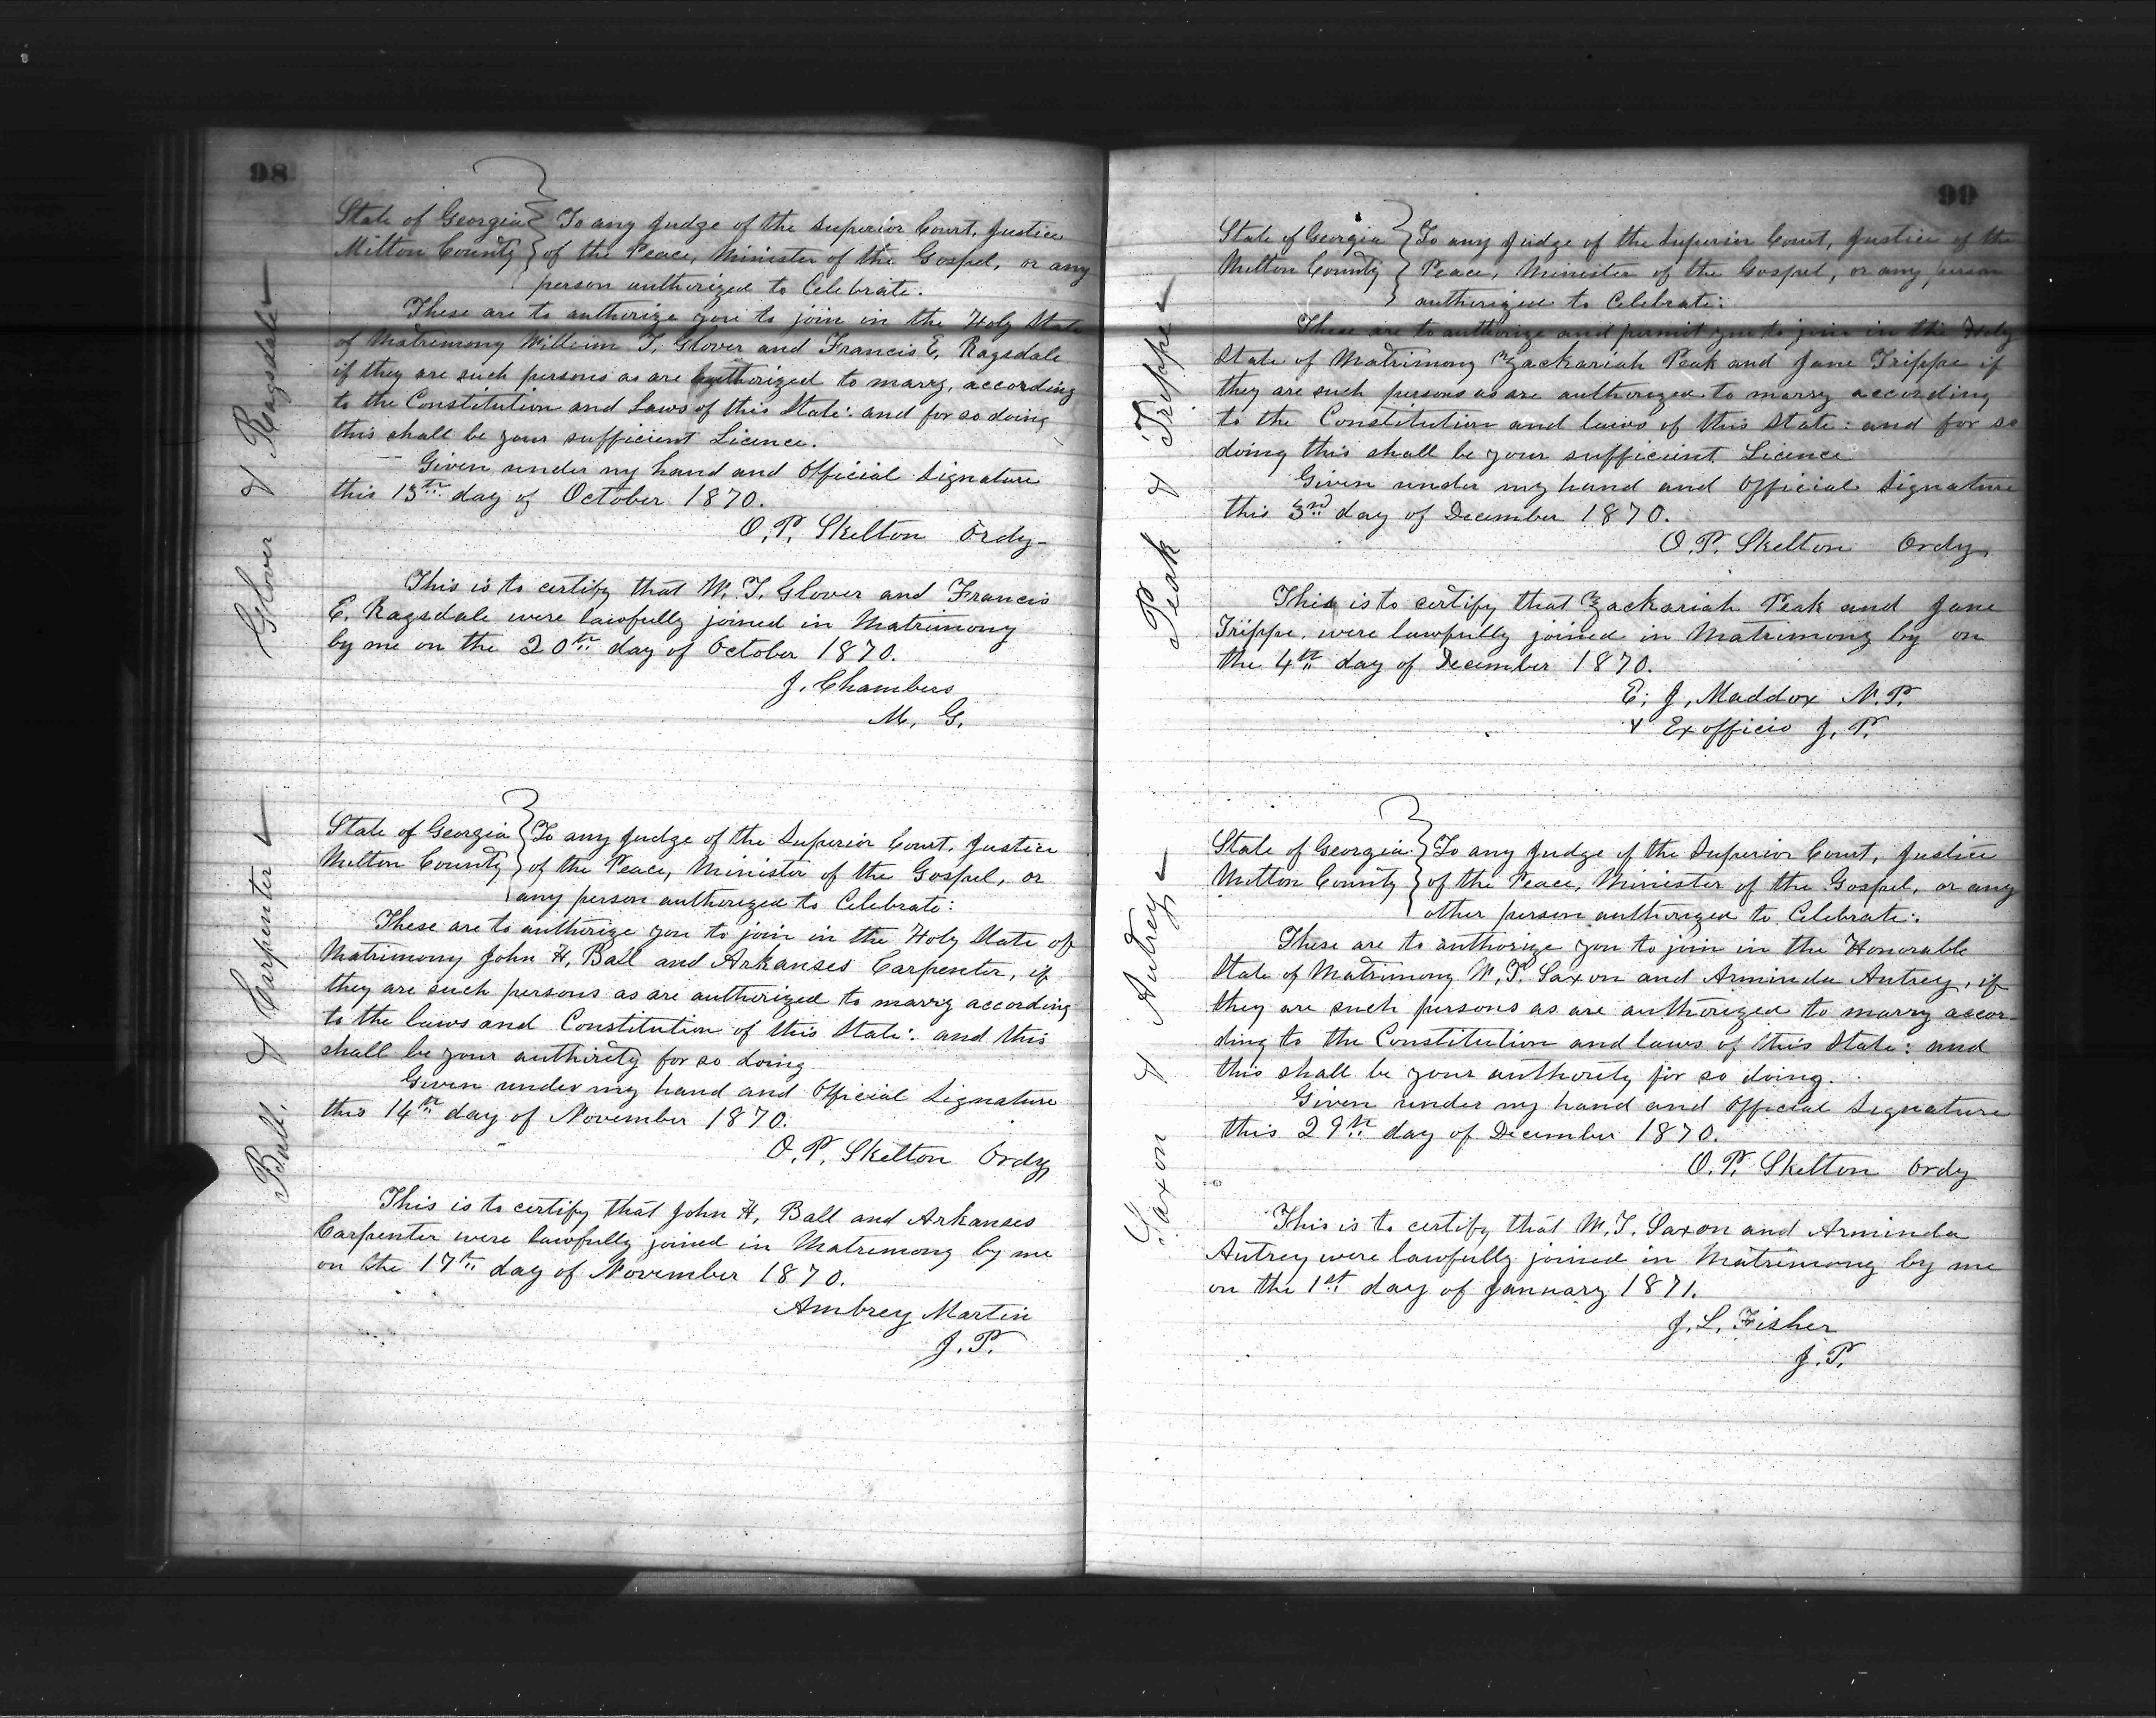 98
Glover & Ragsdale
State of Georgia } To any Judge of the Superior Court, Justice
Milton County } of the Peace, Minister of the Gospel, or any
person authorized to Celebrate.
These are to authorize you to join in the Holy State
of Matrimony William T. Glover and Francis E. Ragsdale
if they are such persons as are authorized to marry, according
to the Constitution and Laws of this State: and for so doing
this shall be your sufficient Licence.
Given under my hand and Official Signature
this 13th day of October 1870.
O. P. Skelton Ordy
This is to certify that W. T. Glover and Francis
E. Ragsdale were lawfully joined in Matrimony
by me on the 20th day of October 1870.
J. Chambers
M. G.
Ball & Carpenter
State of Georgia } To any Judge of the Superior Court, Justice
Milton County } of the Peace, Minister of the Gospel, or
any person authorized to Celebrate:
These are to authorize you to join in the Holy State of
Matrimony John H. Ball and Arkanses Carpenter, if
they are such persons as are authorized to marry according
to the laws and Constitution of this State: and this
shall be your authirity for so doing
Given under my hand and Official Signature
this 14th day of November 1870.
O. P. Skelton Ordy
This is to certify that John H. Ball and Arkanses
Carpenter were lawfully joined in Matrimony by me
on the 17th day of November 1870.
Ambrey Martin
J. P.
99
Peak & Trippe
State of Georgia } To any Judge of the Superior Court, Justice of the
Milton County } Peace, Minister of the Gospel, or any person
authorized to Celebrate:
These are to authorize and permit you to join in the Holy
State of Matrimony Zackariah Peak and Jane Trippe if
they are such persons as are authorized to marry according
to the Constitution and laws of this State: and for so
doing this shall be your sufficient Licence
Given under my hand and Official Signature
this 3rd day of December 1870.
O. P. Skelton Ordy.
This is to certify that Zackariah Peak and Jane
Trippe, were lawfully joined in Matrimony by on
the 4th day of December 1870.
E. J. Maddox N. P.
& Ex officio J. P.
Saxon & Autrey
State of Georgia } To any Judge of the Superior Court, Justice
Milton County } of the Peace, Minister of the Gospel, or any
other person authorized to Celebrate:
These are to authorize you to join in the Honorable
State of Matrimony W. T. Saxon and Arminda Autrey, if
they are such persons as are authorized to marry accor-
ding to the Constitution and laws of this State: and
this shall be your authority for so doing.
Given under my hand and Official Signature
this 29th day of December 1870.
O. P. Skelton Ordy
This is to certify that W. T. Saxon and Arminda
Autrey were lawfully joined in Matrimony by me
on the 1st day of January 1871.
J. L. Fisher
J. P.